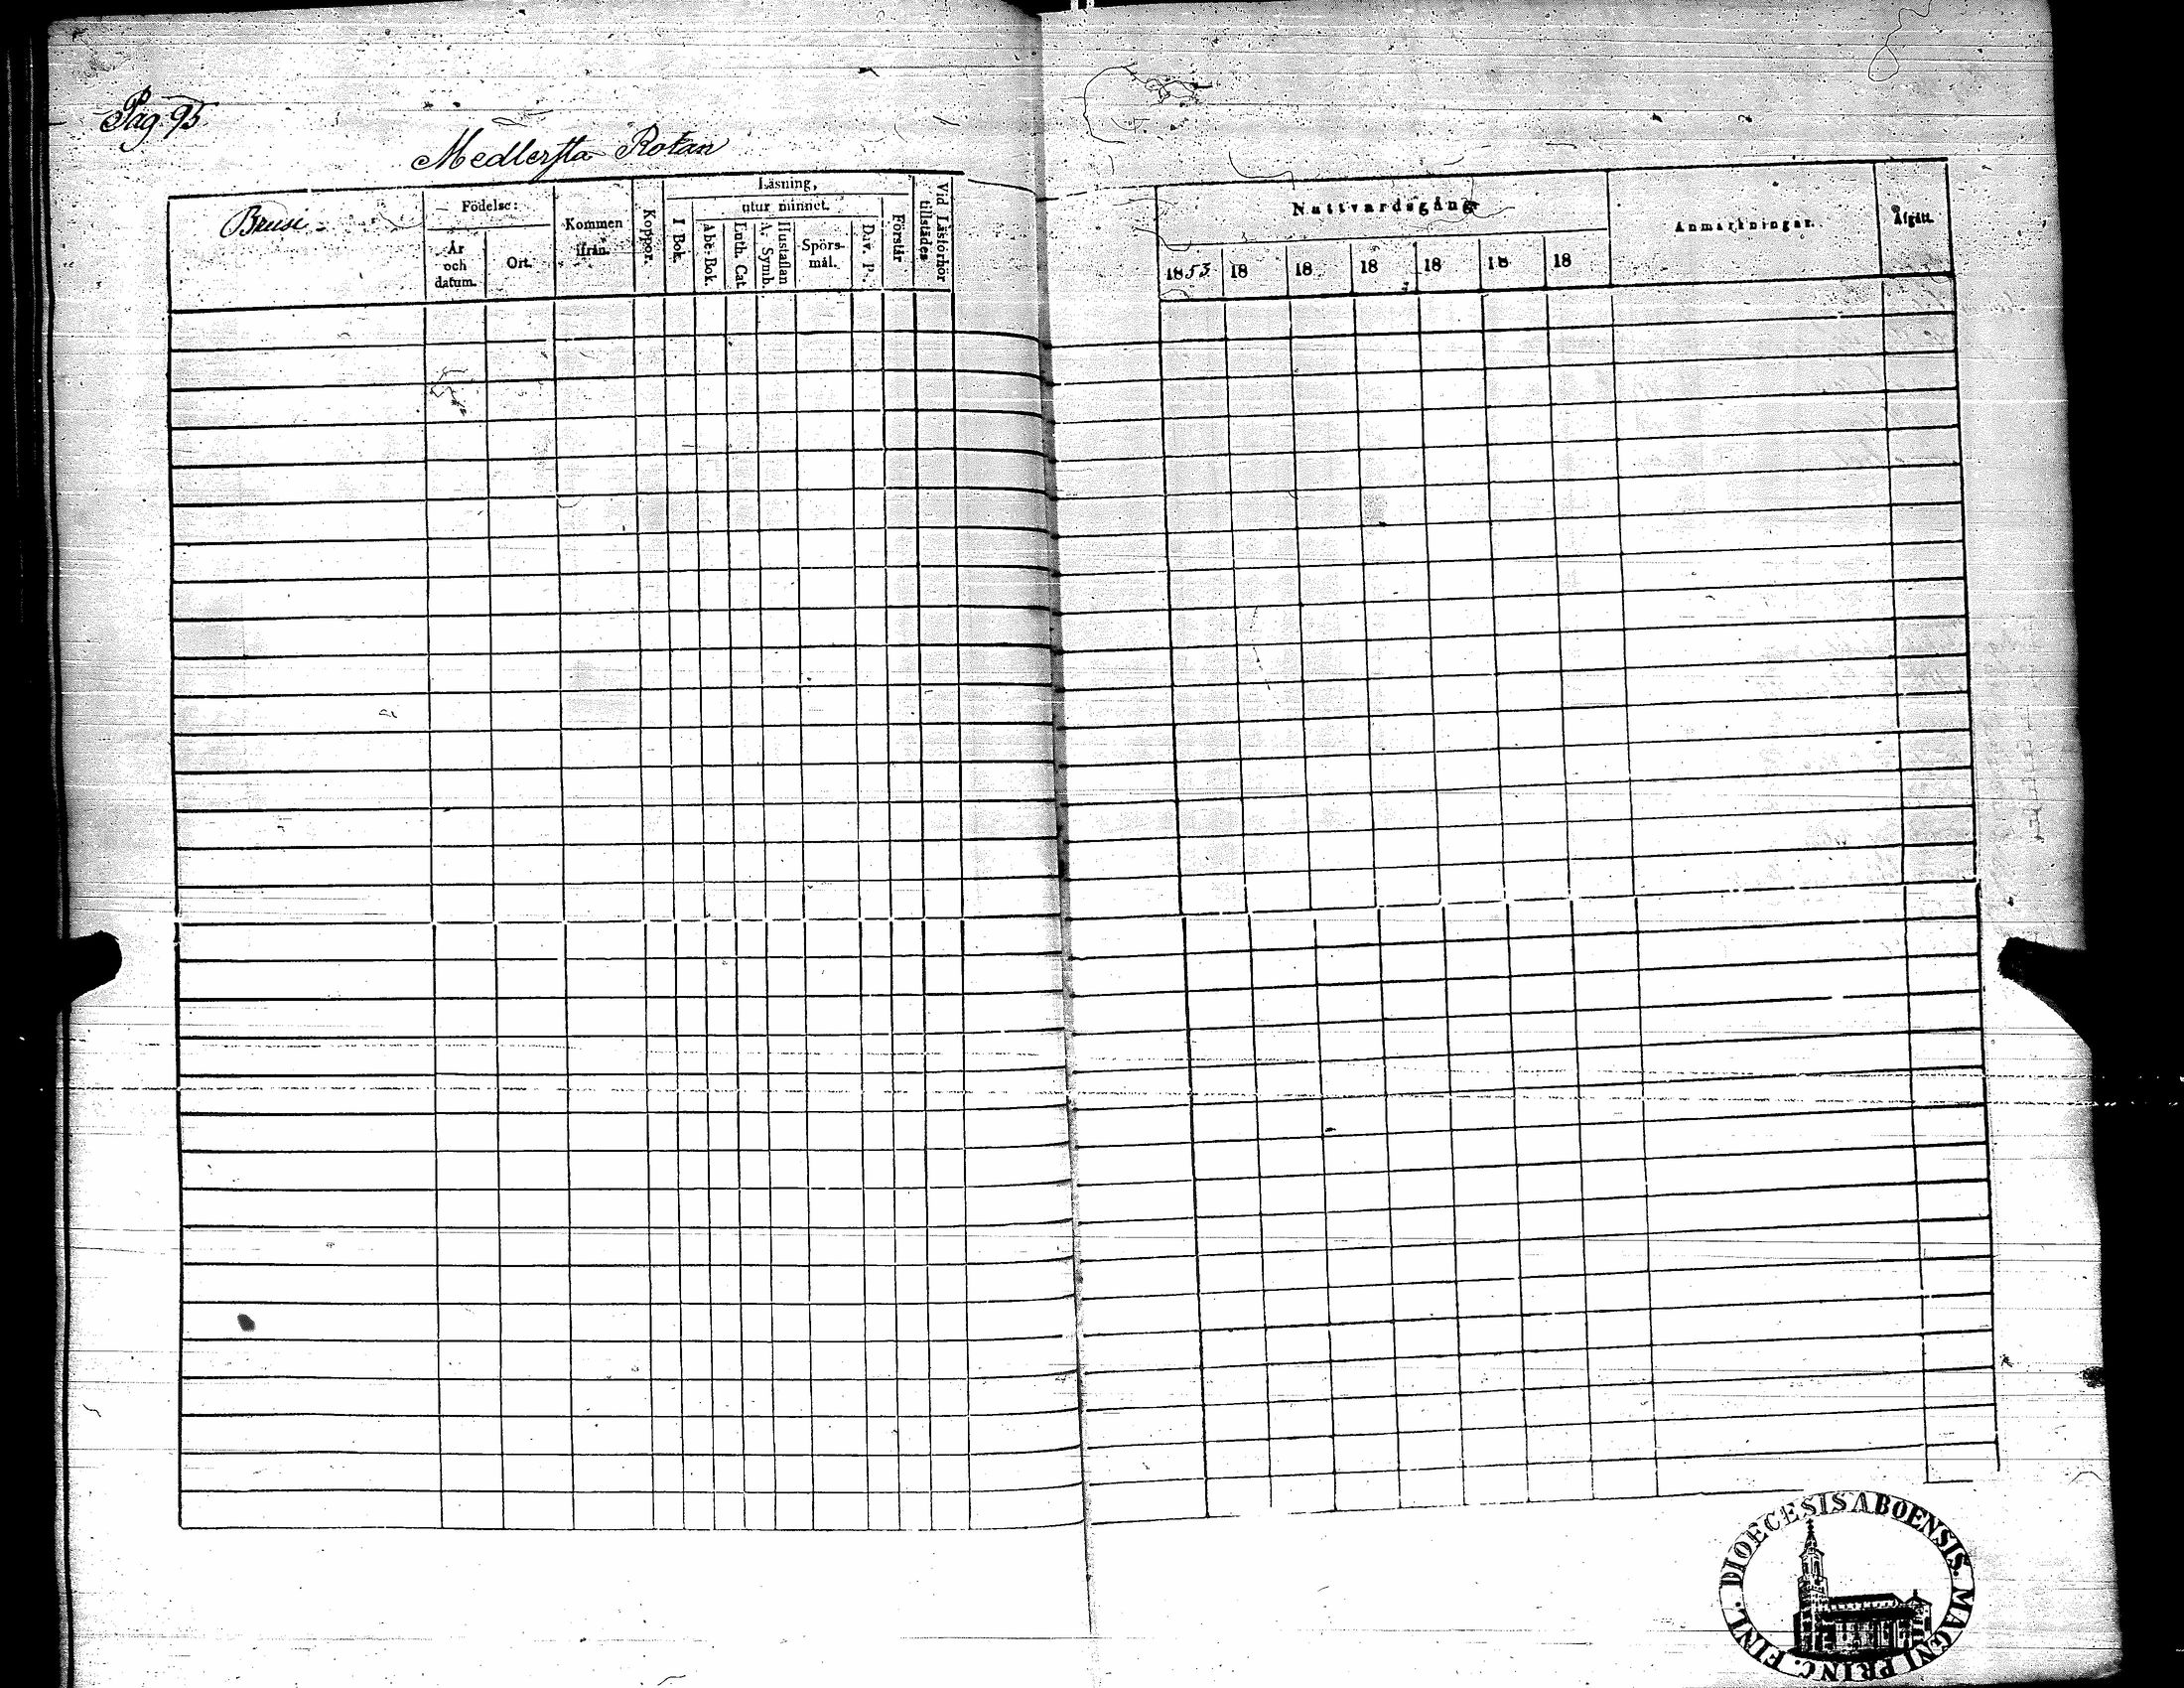 Pag. 95
Medlersta Rotan
Brusi.
Födelse:
År och datum.
Ort.
Kommen ifrån.
Koppor.
Läsning,
utur minnet.
I Bok.
Abc-Bok.
Luth. Cat
A. Symb.
Hustaflan
Spörsmål.
Dav. P.
Förstår
Vid Läsförhör tillstädes
Nattvardsgång
1853
18
18
18
18
18
18
Anmärkningar.
Afgått.
DIOECESIS ABOENSIS. MAGNI PRINC. FINL.